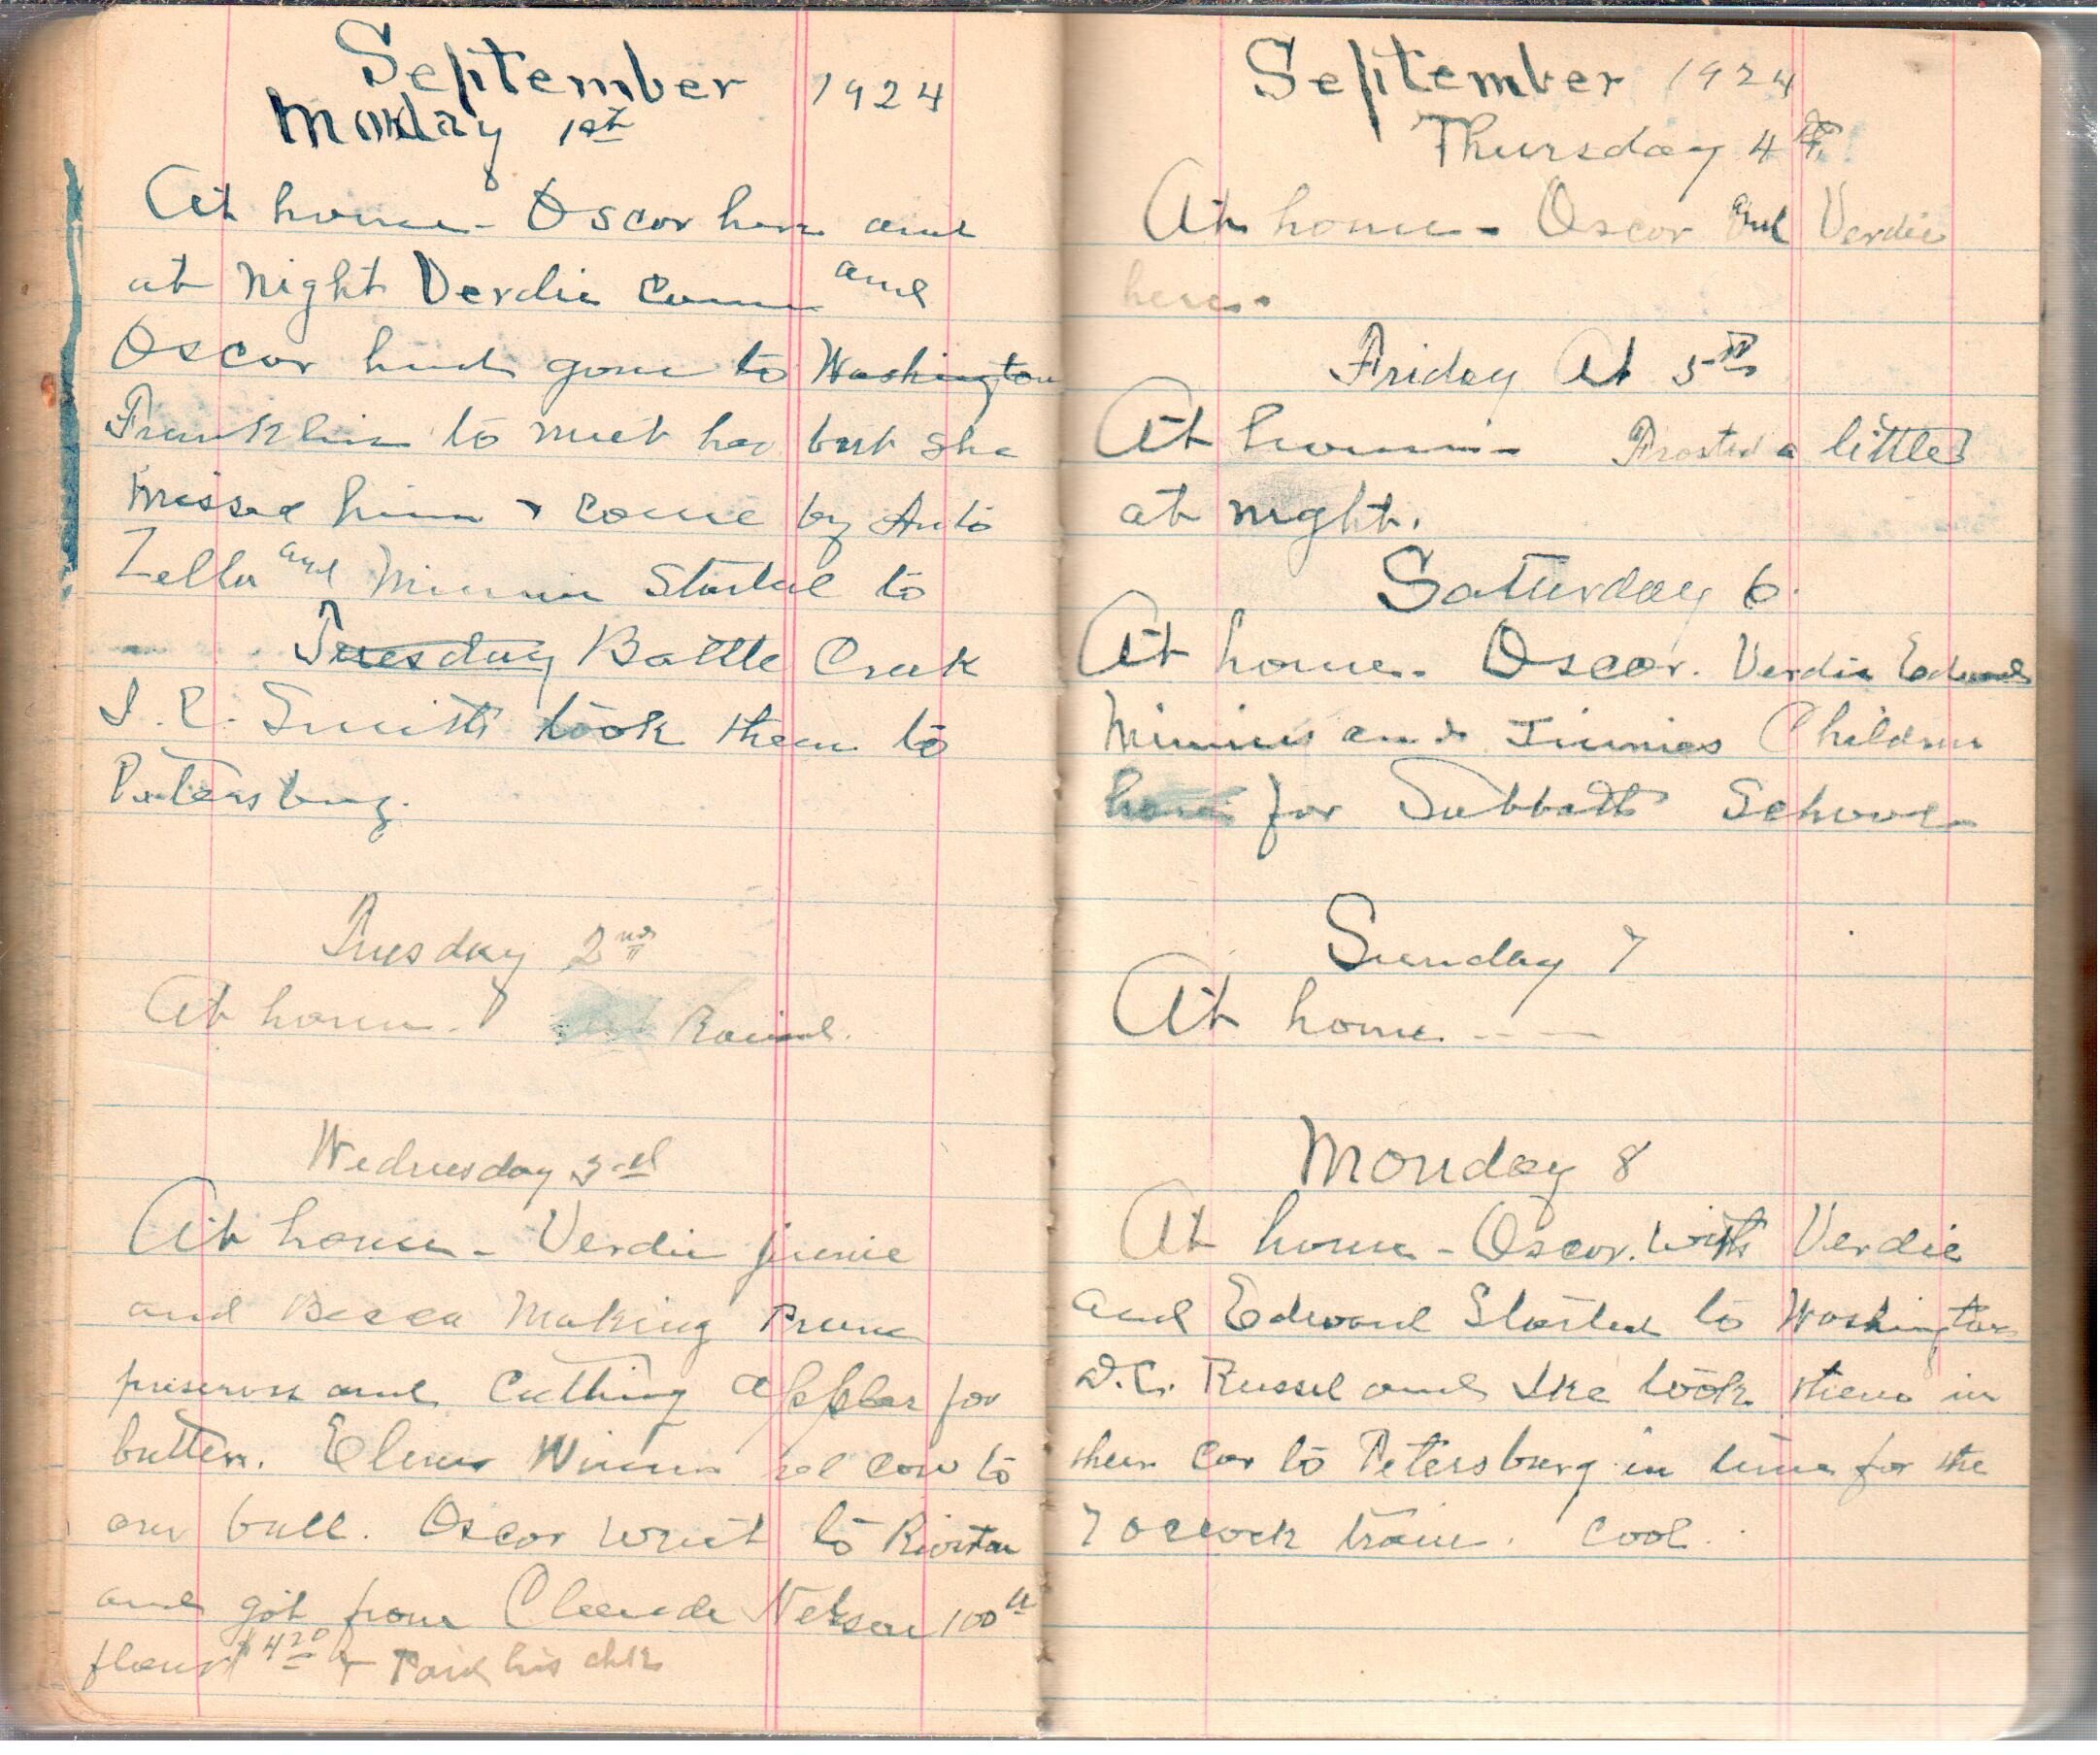 September 1924
Monday 1st
At home - Oscar here and
at night Verdie came and
Oscar had gone to Washington
Franklin to meet her but she
missed him & come by Auto
Zella and Minnie Started to
Tuesday Battle Creek
Smith took them to
Petersburg.
Tuesday 2nd
At home. Rained.
Wednesday 3rd
At home - Verdie Junie
and Becca Making Prune
preserves and Cutting apples for
butter. cow to
our bull. Oscar went to Riverton
and got from Claude Nelson 100 lb
flour $4.20 & Paid his chk
September 1924
Thursday 4th
At home - Oscar and Verdie
here.
Friday At 5th
At home - Frosted a little
at night.
Saturday 6.
At home. Oscar. Verdie Edward
Minnies and Jinnies Children
here for Sabbath School
Sunday 7
At home - -
Monday 8
At home - Oscar. with Verdie
and Edward Started to Washington
D.C. Russel and Ike took them in
their Car to Petersburg in time for the
7 oclock train. Cool.